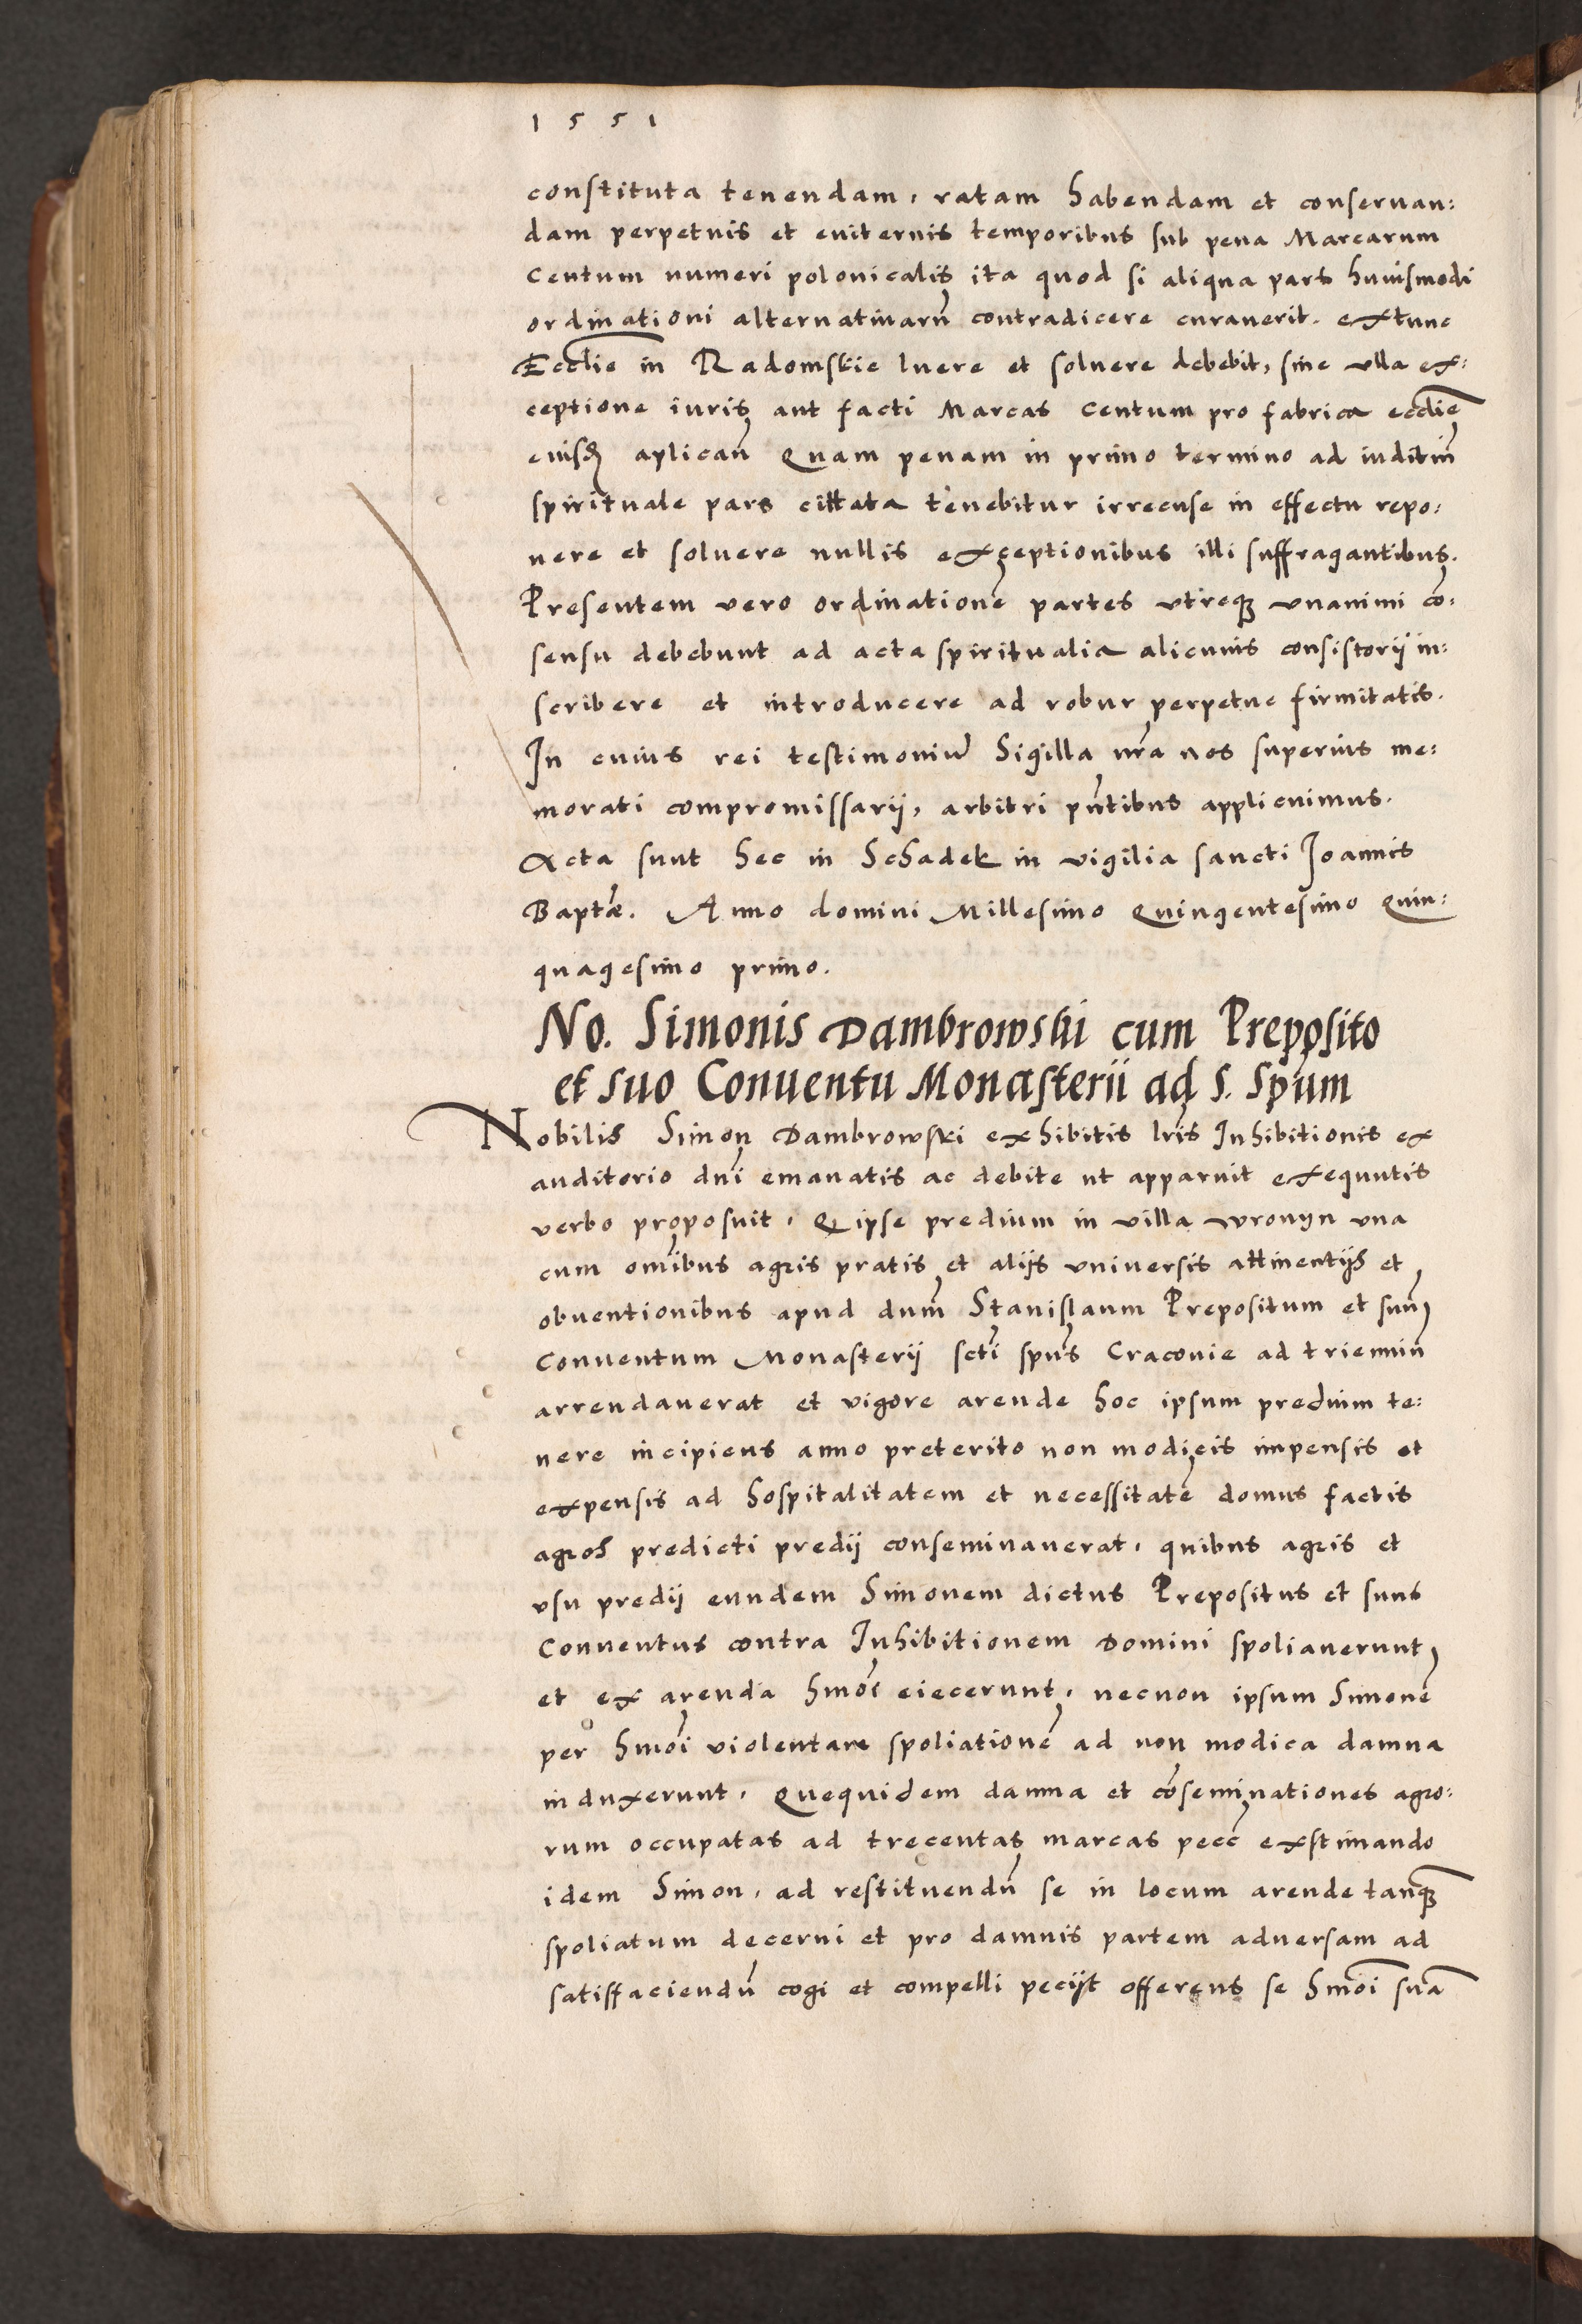 1551
constituta tenendam, ratam habendam et conseruan:
dam perpetuis et euiternis temporibus sub pena Marcarum
Centum numeri polonicalis ita quod si aliqua pars huiusmodi
ordinationi alternatiuarũ contradicere curauerit. extunc
Ecclie in Radomskie luere et soluere debebit, sine vlla ex:
ceptione iuris aut facti Marcas Centum pro fabrica ecclie
eiusdẽ aplicañ Quam penam in primo termino ad iuditiũ
spirituale pars cittata tenebitur irrecuse in effectu repo:
nere et soluere nullis exceptionibus illi suffragantibus.
Presentem vero ordinationẽ partes vtreqȝ vnanimi cõ:
sensu debebunt ad acta spiritualia alicuius consistorij in:
scribere et introducere ad robur perpetue firmitatis.
In cuius rei testimoniũ Sigilla nr̃a nos superius me:
morati compromissarij, arbitri pñtibus applicuimus.
Acta sunt hec in Schadek in vigilia sancti Joannis
Baptæ. Anno domini Millesimo Quingentesimo Quin:
quagesimo primo.
No. Simonis Dambrowski cum Preposito
et suo Conuentu Monasterii ad S. Spũm
Nobilis Simon Dambrowski exhibitis lr̃is Inhibitionis ex
auditorio dñi emanatis ac debite ut apparuit exequutis
verbo proposuit, Q ipse predium in villa wronyn vna
cum om̃ibus agris pratis et alijs vniuersis attinentijs et
obuentionibus apud dum̃ Stanislaum Prepositum et suũ
Conuentum Monasterij sctĩ spũs Cracouie ad trienniũ
arrendauerat et vigore arende hoc ipsum predium te:
nere incipiens anno preterito non modicis impensis et
expensis ad hospitalitatem et necessitatẽ domus factis
agros predicti predij conseminauerat, quibus agris et
vsu predij eundem Simonem dictus Prepositus et suus
Conuentus contra Inhibitionem Domini spoliauerunt
et ex arenda hmõi eiecerunt, necnon ipsum Simonẽ
per hmõi violentam spoliationẽ ad non modica damna
induxerunt, Quequidem damna et cõseminationes agro:
rum occupatas ad trecentas marcas pecc̃ exstimando
idem Simon, ad restituendũ se in locum arende tanqȝ
spoliatum decerni et pro damnis partem aduersam ad
satisffaciendũ cogi et compelli pecijt offerens se hmõi suã